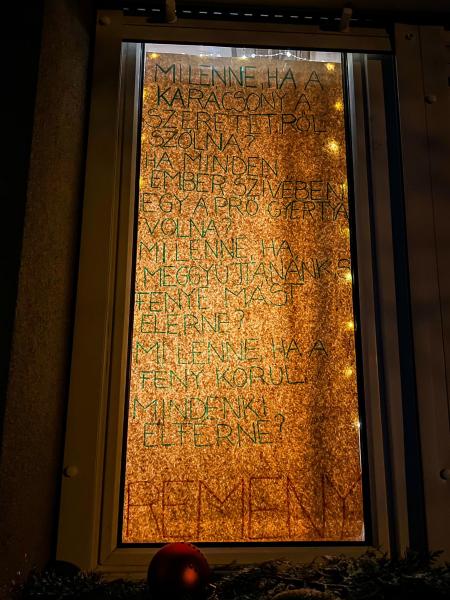 MI LENNE, HA A
KARÁCSONY A
SZERETETRŐL
SZÓLNA?
HA MINDEN
EMBER SZÍVÉBEN
EGY APRÓ GYERTYA
VOLNA?
MI LENNE, HA
MEGGYÚJTANÁNK S
FÉNYE MÁST
ELÉRNE?
MI LENNE, HA A
FÉNY KÖRÜL
MINDENKI
ELFÉRNE?
REMÉNY